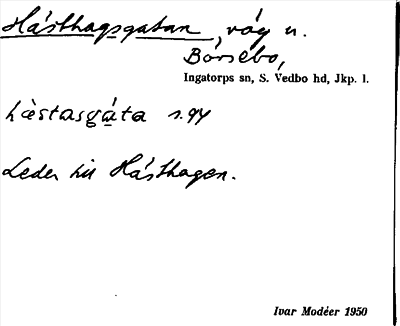 Hästhagsgatan, väg u.
Börsebo,
Ingatorps sn, S. Vedbo hd, Jkp. l.
hæstasgáta s. 94
Leder till Hästhagen.
Ivar Modéer 1950